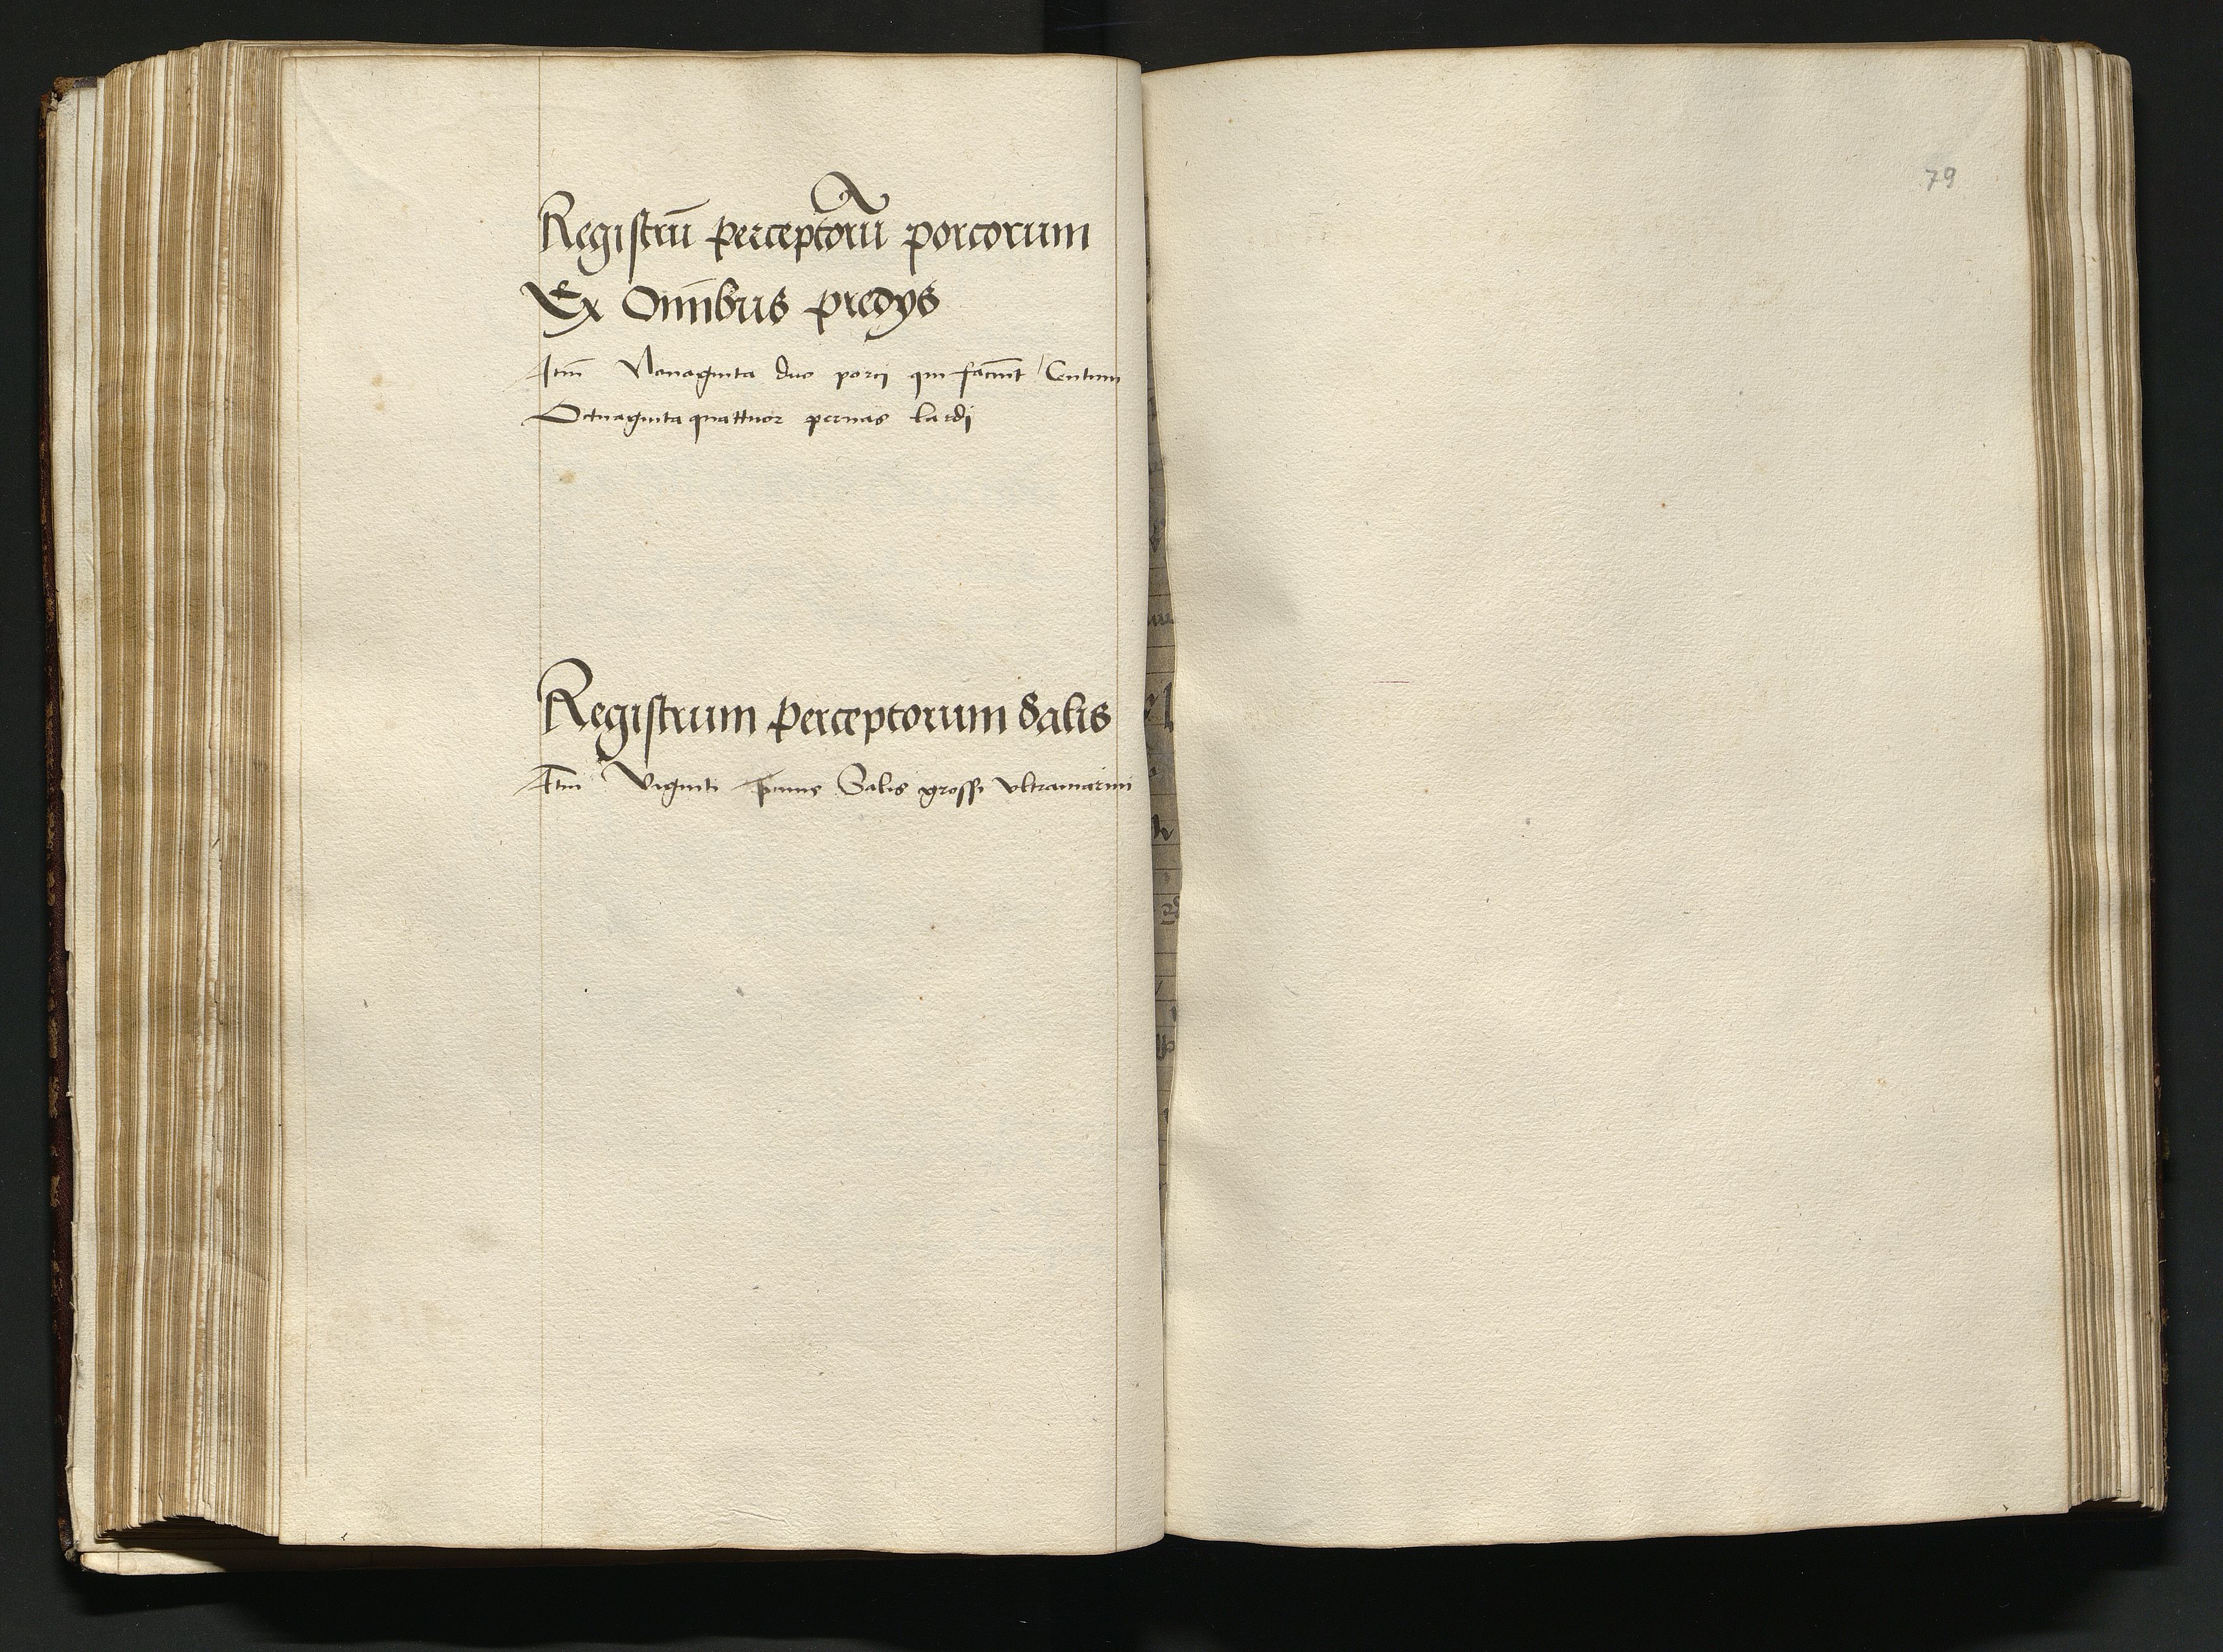 Registrū perceptorū porcorum
Ex Omībus predys
Itm̄ Nonaginta duo porci qui faciūt Centum
Octuaginta quattuor pernas lardj
Registrum perceptorum Salis
Itm̄ viginti Salis grossi vltramarini
79